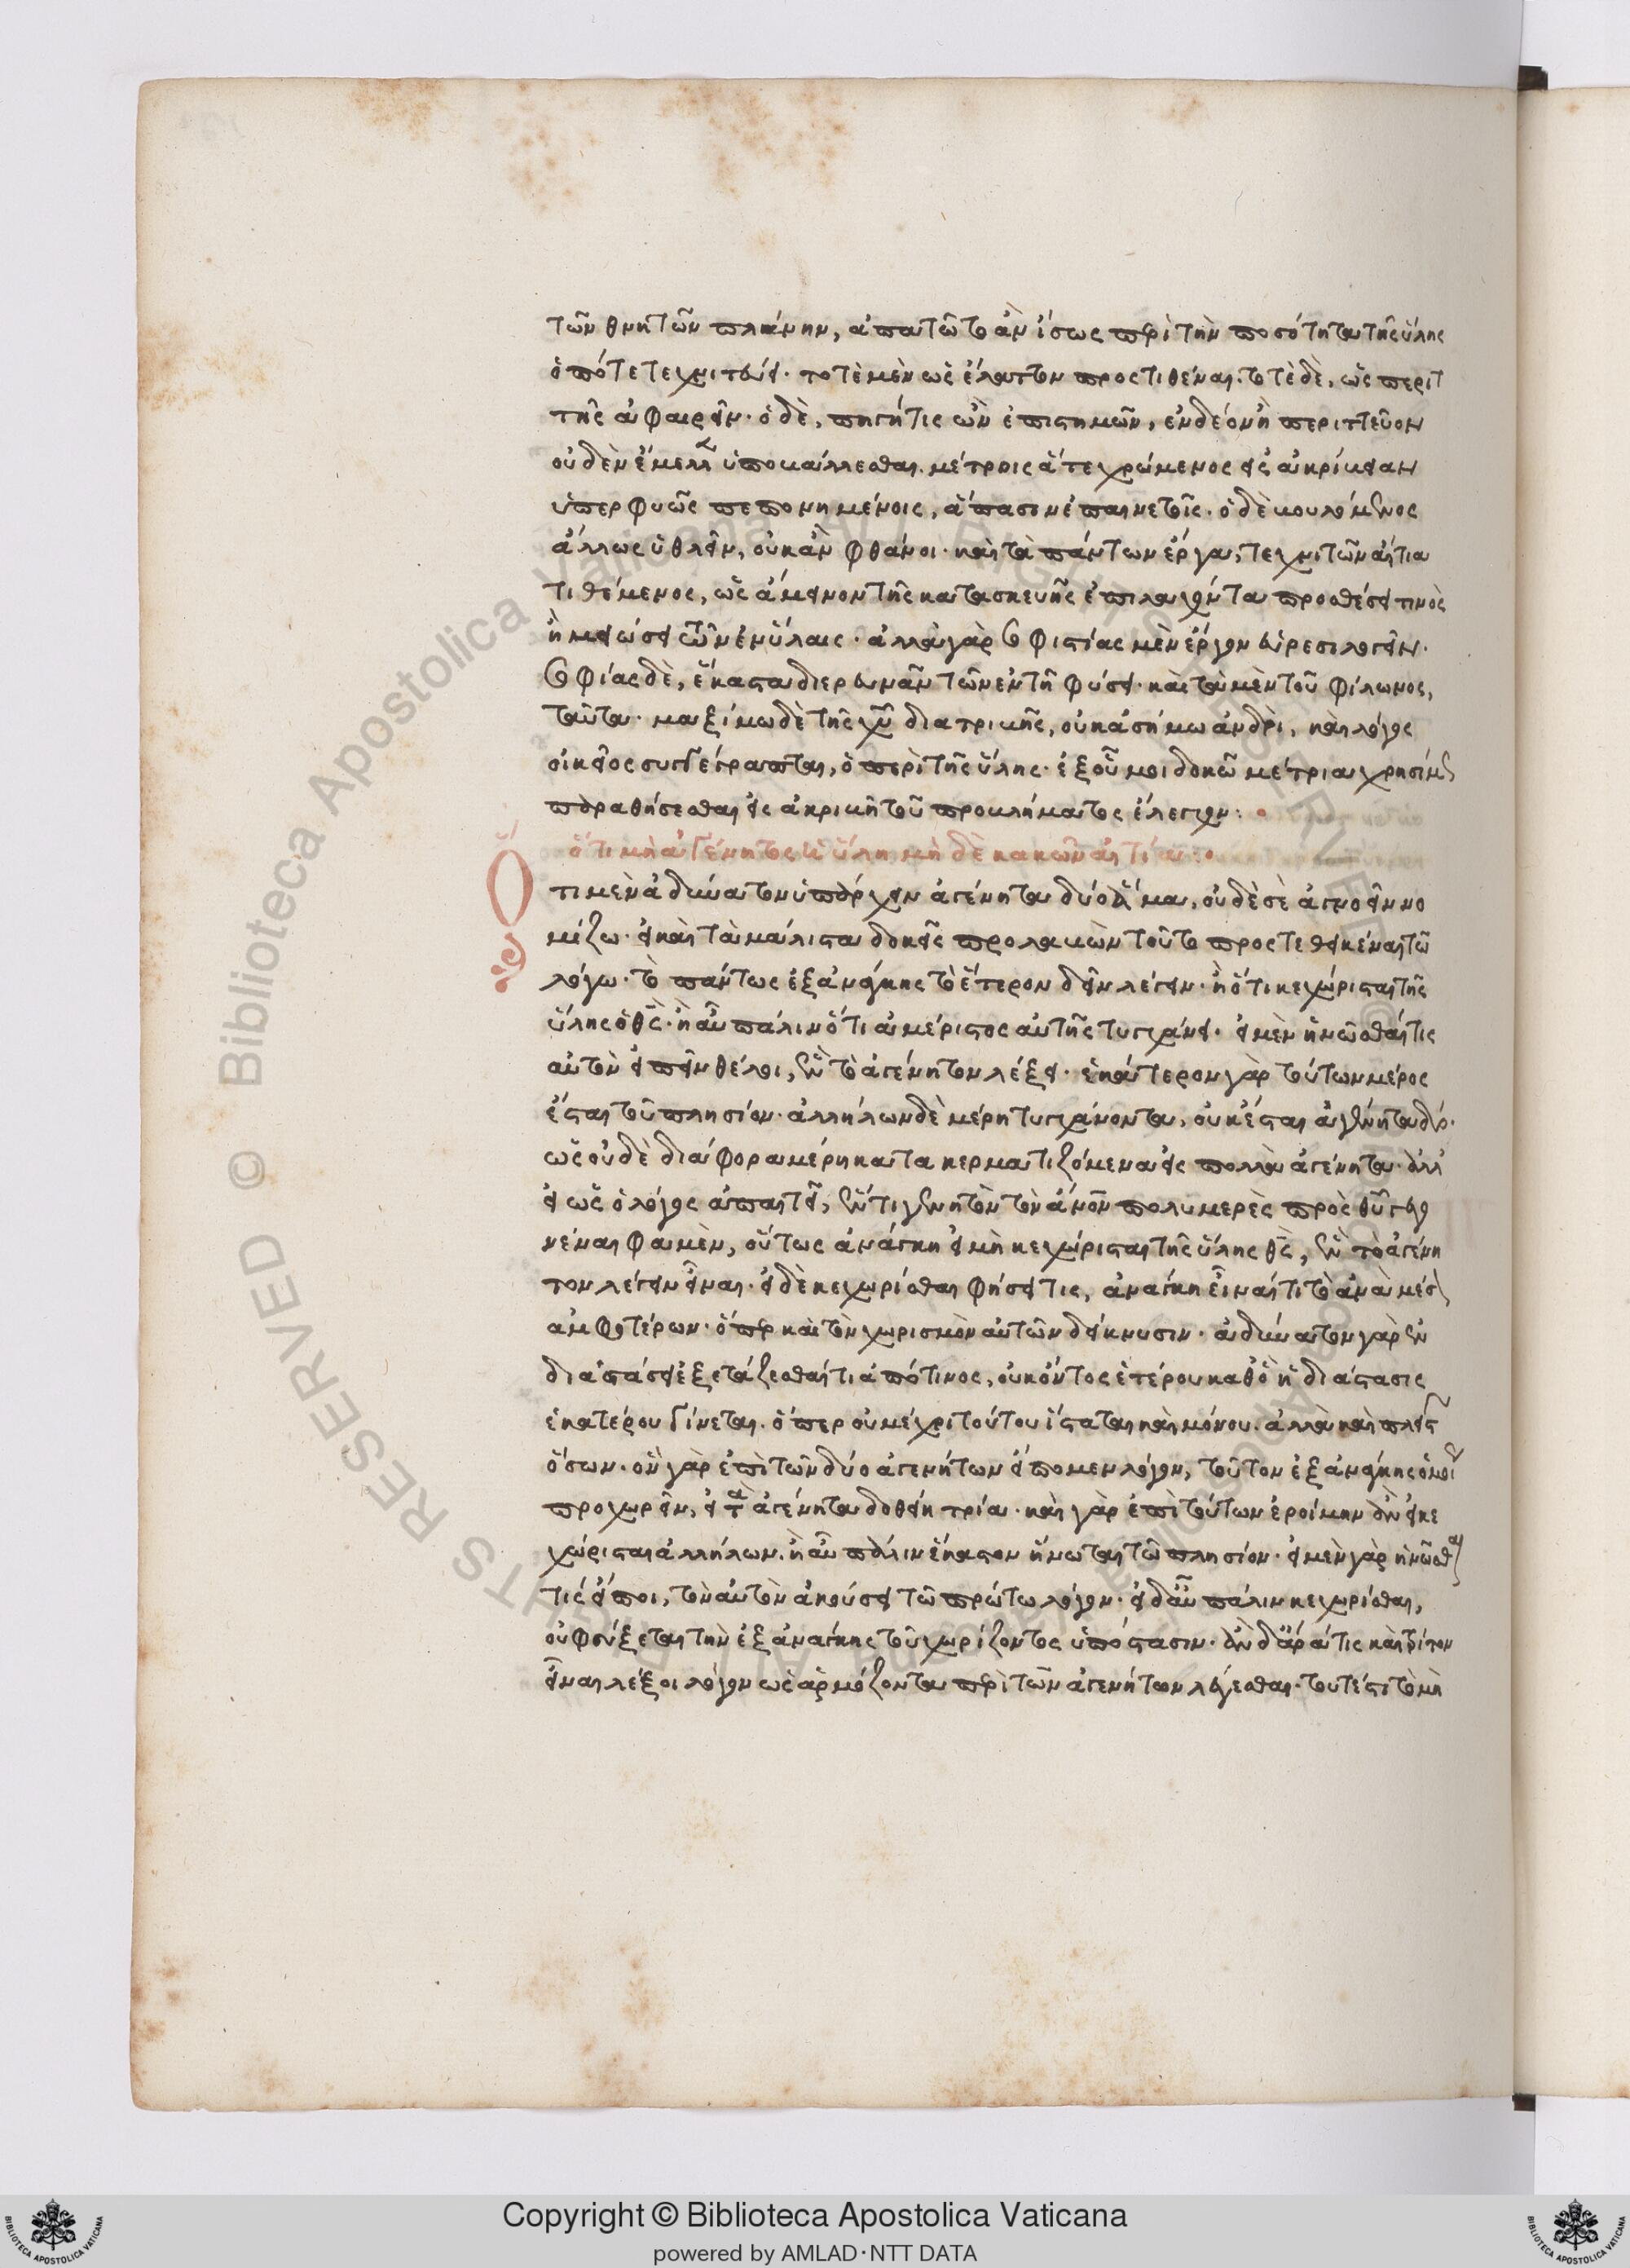 τῶν θνητῶν πλάνην, ἀπατῷτο ἂν ἴσως περὶ τὴν ποσότητα τῆς ὕλης
ὁπότε τεχνιτεύει. τοτὲ μὲν ὡς ἔλαττον προστιθέναι. τοτὲ δὲ, ὡς περιτ
τῆς ἀφαιρεῖν. ὁ δὲ, πηγή τις ὢν ἐπιστημῶν, ἐνδέον ἢ περιττεῦον
οὐδὲν ἔμελλ ὑποβάλλεσθαι. μέτροις ἅτε χρώμενος εἰς ἀκρίβειαν
ὑπερφυῶς πεπονημένοις, ἅπασιν ἐπαινετοῖς. ὁ δὲ βουλόμενος
ἄλλως ὑθλεῖν, οὐκ ἂν φθάνοι. καὶ τὰ πάντων ἔργα, τεχνιτῶν αἴτια
τιθέμενος, ὡς ἄμεινον τῆς κατασκευῆς ἐπιλαχόντα προσθέσει τινὸς
ἢ μειώσει τῶν ἐν ὕλαις. ἀλλὰ γὰρ σοφιστίας μὲν ἔργον εὑρεσιλογεῖν.
σοφίας δὲ, ἕκαστα διερευνᾶν τῶν ἐν τῇ φύσει. καὶ τὰ μὲν τοῦ φίλωνος,
ταῦτα. μαξίμω δὲ τῆς χυ διατριβῆς, οὐκ ἀσήμω ἀνδρὶ, καὶ λόγος
οἰκεῖος συγγέγραπται, ὁ περὶ τῆς ὕλης. ἐξ οὗ μοι δοκῶ μέτρια χρησίμως
παραθήσεσθαι εἰς ἀκριβῆ τοῦ προβλήματος ἔλεγχον:
ὅτι μὴ ἀγένητος ἡ ὕλη μὴ δὲ κακῶν αἰτία:
Ὅτι μὲν ἀδύνατον ὑπάρχειν ἀγένητα δύο ἅμα, οὐδὲ σὲ ἀγνοεῖν νο
μίζω. εἰ καὶ τὰ μάλιστα δοκεῖς προλαβὼν τοῦτο προστεθεικέναι τῶ
λόγω. τὸ πάντως ἐξ ἀνάγκης τὸ ἕτερον δεῖν λέγειν. ἢ ὅτι κεχώρισται τῆς
ὕλης ὁ θς. ἢ αὖ πάλιν ὅτι ἀμέριστος αὐτῆς τυγχάνει. εἰ μὲν ἡνῶσθαί τις
αὐτὸν εἰπεῖν θέλοι, ἓν τὸ ἀγένητον λέξει. ἑκάτερον γὰρ τούτων μέρος
ἔσται τοῦ πλησίον. ἀλλήλων δὲ μέρη τυγχάνοντα, οὐκ ἔσται ἀγένητα δύο.
ὡς οὐδὲ διάφορα μέρη κατακερματιζόμενα εἰς πολλὰ ἀγένητα. ἀλλ
εἰ ὡς ὁ λόγος ἀπαιτεῖ, ἕν τι γενητὸν τὸν ἄνον πολυμερὲς πρὸς θυ γεγο
νέναι φαμὲν, οὕτως ἀνάγκη εἰ μὴ κεχώρισται τῆς ὕλης θς, ἓν τὸ ἀγένη
τον λέγειν εἶναι. εἰ δὲ κεχωρίσθαι φήσει τις, ἀνάγκη εἶναί τι τὸ ἀνὰ μέσον
ἀμφοτέρων. ὅπερ καὶ τὸν χωρισμὸν αὐτῶν δείκνυσιν. ἀδύνατον γὰρ ἐν
διαστάσει ἐξετάζεσθαί τι ἀπό τινος, οὐκ ὄντος ἑτέρου καθ' ὃ ἡ διάστασις
ἑκατέρου γίνεται. ὅπερ οὐ μέχρι τούτου ἵσταται καὶ μόνου. ἀλλὰ καὶ πλείστ
ὅσων. ὃν γὰρ ἐπὶ τῶν δύο ἀγενήτων εἴπομεν λόγον, τοῦτον ἐξ ἀνάγκης ὁμοί
προχωρεῖν, εἰ τὰ ἀγένητα δοθείη τρία. καὶ γὰρ ἐπὶ τούτων ἐροίμην ἂν εἰ κε
χώρισται ἀλλήλων. ἢ αὖ πάλιν ἕκαστον ἥνωται τῶ πλησίον. εἰ μὲν γὰρ ἡνῶσθαι
τις εἴποι, τὸν αὐτὸν ἀκούσει τῶ πρώτω λόγον. εἰ δ' αὖ πάλιν κεχωρίσθαι,
οὐ φεύξεται τὴν ἐξ ἀνάγκης τοῦ χωρίζοντος ὑπόστασιν. ἂν δ' ἄρα τις καὶ τρίτον
εἶναι λέξοι λόγον ὡς ἁρμόζοντα περὶ τῶν ἀγενήτων λέγεσθαι. τουτέστι τὸ μὴ
Copyright © Biblioteca Apostolica Vaticana
powered by AMLAD·NTT DATA